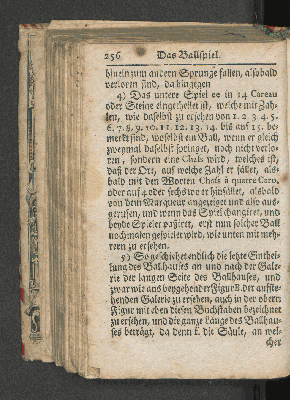 256 Das Ballspiel.
hinein zum andern Sprunge fallen, alsobald
verloren sind, da hingegen
4) Das untere Spiel ee in 14 Careau
oder Steine eingetheilet ist, welche mit Zah-
len, wie daselbst zu ersehen von 1. 2. 3. 4. 5.
6. 7. 8. 9. 10. 11. 12. 13. 14. bis auf 15. be-
merkt sind, woselbst ein Ball, wenn er gleich
zweymal daselbst springet, noch nicht verlo-
ren, sondern eine Chass wird, welches ist,
daß der Ort, auf welche Zahl er fällt, als-
bald mit den Worten Chass à quatre Caro,
oder auf 4 oder sechs wo er hinfället, alsobald
von dem Marqueur angezeiget und also aus-
gerufen, und wenn das Spiel changiret, und
beyde Spieler paßiret, erst um solcher Ball
nochmalen gespielet wird, wie unten mit meh-
rern zu ersehen.
5) So geschiehet endlich die letzte Einthei-
lung des Ballhauses an und nach der Gale-
rie der langen Seite des Ballhauses, und
zwar wie aus beygehender Figur 8. der aufste-
henden Galerie zu ersehen, auch in der obern
Figur mit eben diesen Buchstaben bezeichnet
zu ersehen, und die ganze Länge des Ballhau-
ses beträgt, da denn f. die Säule, an wel-
cher